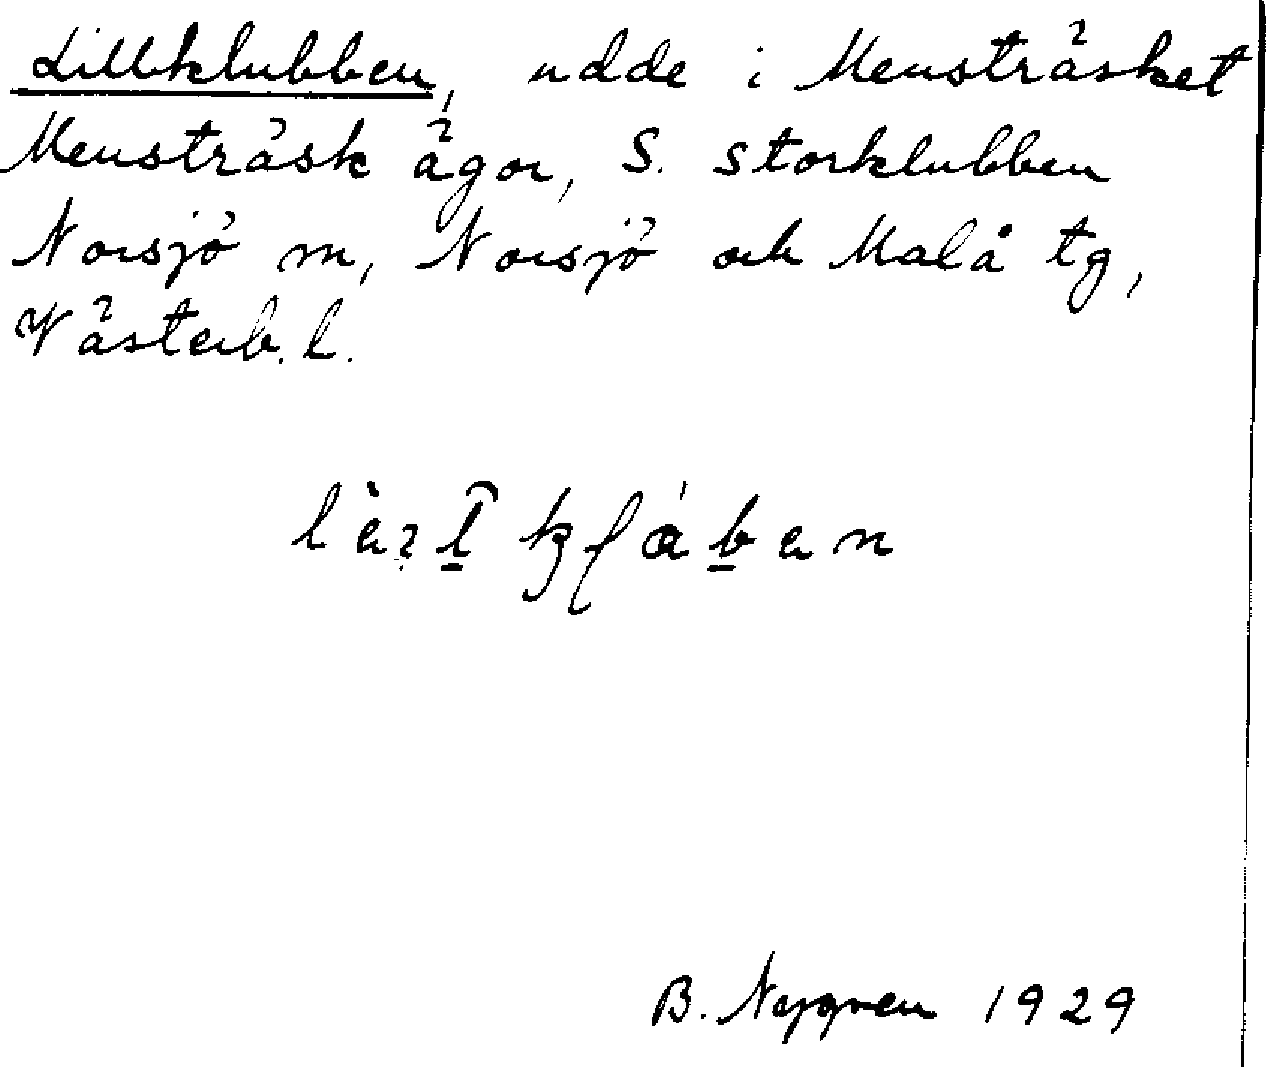 Lillklubben, udde i Mensträsket
Mensträsk ägor, S. Storklubben
Norsjö m, Norsjö och Malå tg,
Västerb. l.
B. Nygren 1929